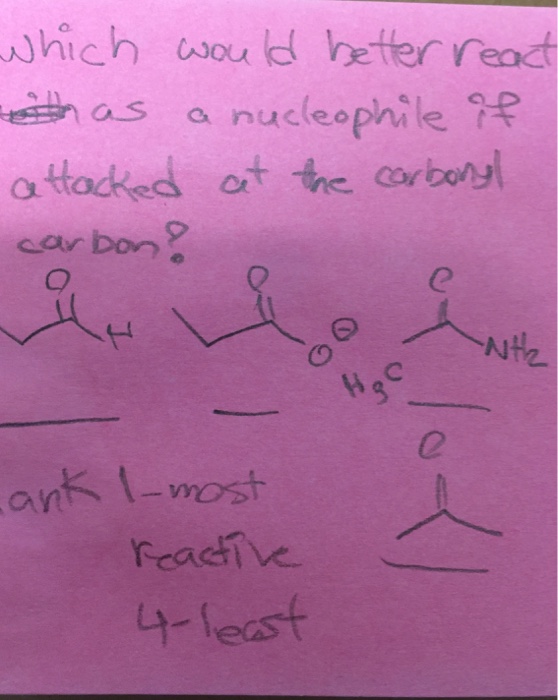 which would better react
as a nucleophile if
attacked at the carbonyl
carbon?
O O O
H O⊖ NH2
H3C
O
ank 1-most
reactive
4-least